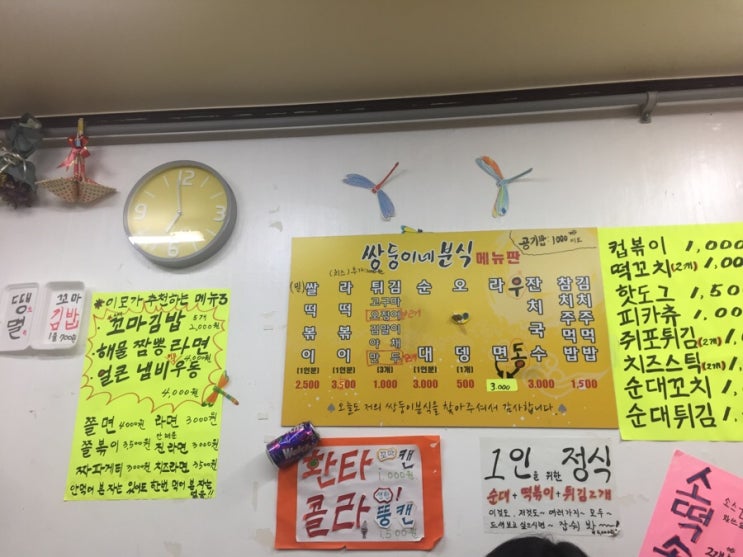 꼬마
김밥
1줄 700원
이모가 추천하는 메뉴
꼬마김밥 2,000원
해물 짬뽕 라면
얼큰 냄비우동
4,000원
쫄면 4000원 라면 3000원
쫄볶이 3500원 진라면 3000원
짜파게티 3000원 치즈라면 3500원
쌍둥이네분식 메뉴판
공기밥 : 1000
(밀)쌀떡볶이 (1인분) 2,500
(치즈) 라떡볶이 (1인분) 3,500
튀김 고구마 오징어 김말이 야채 만두 (3개) 1.000
순대 (1인분) 3.000
오뎅 (1개) 500
라면
우동 3.000
잔치국수 3.000
참치주먹밥
김치주먹밥 1,500
오늘도 저희 쌍둥이분식을 찾아주셔서 감사합니다
컵볶이 1,000
떡꼬치(2개) 1,0
핫도그 1,50
피카츄 1,00
쥐포튀김(2개) 1
치즈스틱(2개) 1
순대꼬치 1,
순대튀김 1,
환타 캔 1,000원
콜라! 뚱캔 1,500원
1인을 위한 정식
순대+떡볶이+튀김2개
이것도, 저것도~ 여러가지~ 모두~
드셔보고 싶으시면~
소떡